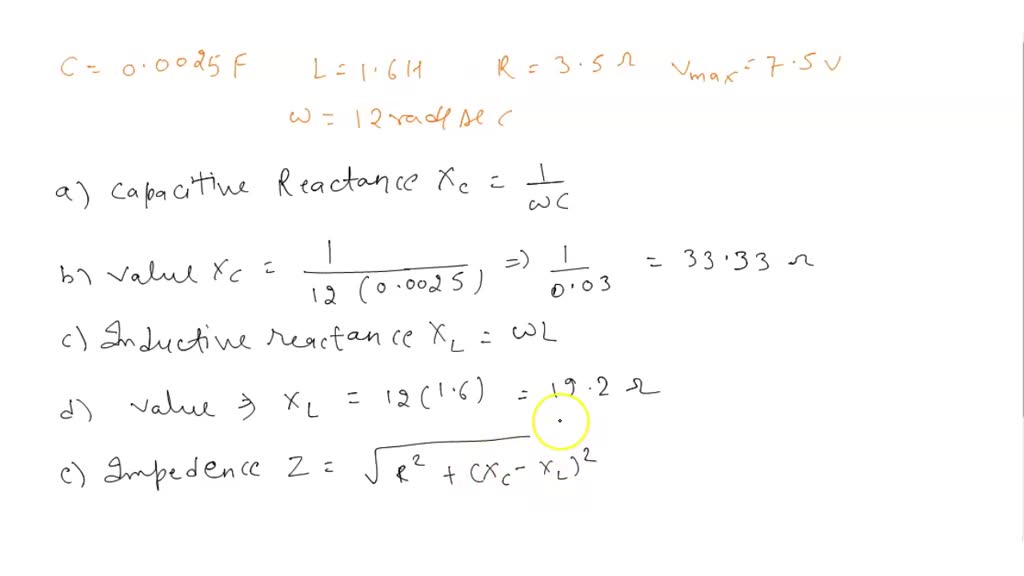 C = 0.0025 F L = 1.6H R = 3.5 Ω Vmax = 7.5 V
ω = 12 rad/sec
a) Capacitive Reactance Xc = 1/ωC
b) Value Xc = 1/12(0.0025) => 1/0.03 = 33.33 Ω
c) Inductive reactance XL = ωL
d) Value => XL = 12(1.6) = 19.2 Ω
e) Impedence Z = √R² + (Xc - XL)²